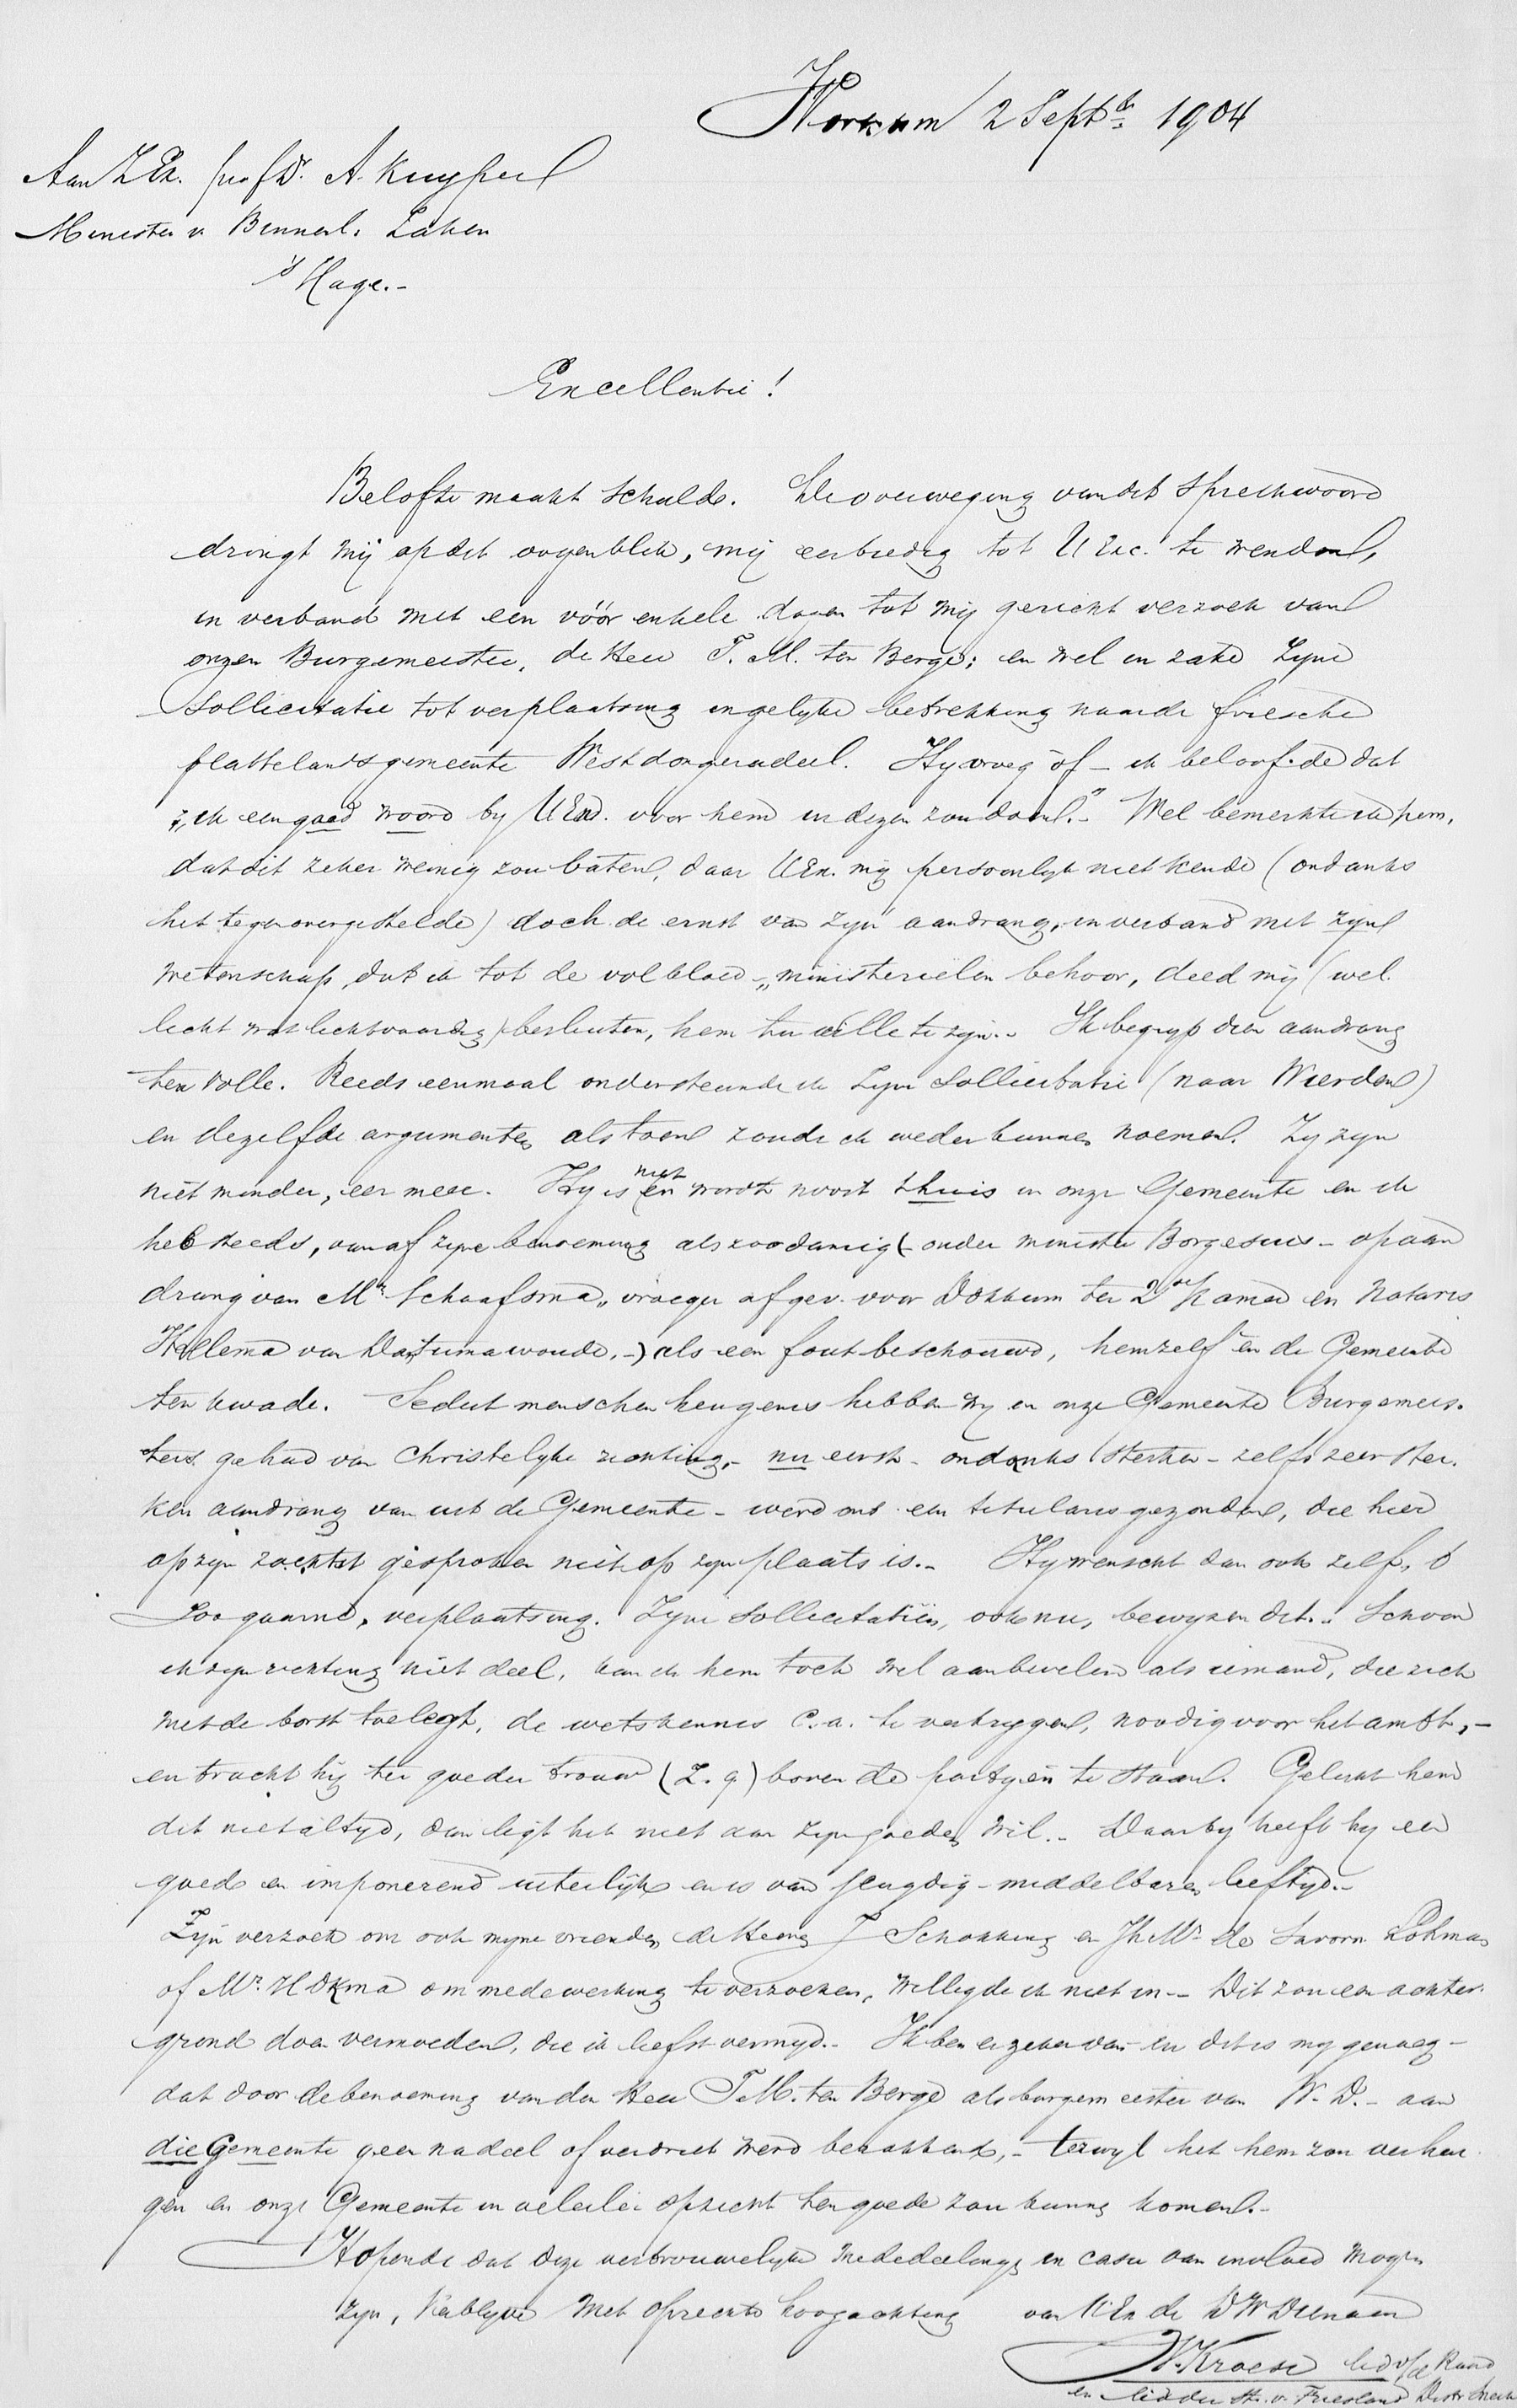 Workum 2 Septbr 1904
Aan Z.Ex. prof Dr. A. Kuyper
Minister v Binnenl. Zaken
's Hage.-
Excellentie!
Belofte maakt schuld. De overweging van dit spreekwoord
dringt mij op dit oogenblik, mij eerbiedig tot U Exc. te wenden,
in verband met een vóór enkele dagen tot mij gericht verzoek van
onzen Burgemeester, de Heer T. M. ten Berge; en wel in zake zijne
sollicitatie tot verplaatsing in gelijke betrekking naar de friesche
plattelandsgemeente Westdongeradeel. Hij vroeg of - ik beloofde dat
"ik een goed woord by UExc. voor hem in dezen zou doen." Wel bemerkte ik hem,
dat dit zeker weinig zou baten, daar UEx. mij persoonlijk niet kende (ondanks
het tegenovergestelde) doch de ernst van zijn aandrang, in verband met zijn
wetenschap, dat ik tot de volbloed "ministerieëlen behoor, deed mij (wel
licht wat lichtvaardig) besluiten, hem ter wille te zijn.- Ik begrijp dien aandrang
ten volle. Reeds eenmaal ondersteunde ik zijne sollicitatie (naar Wierden)
en dezelfde argumenten als toen zoude ik weder kunnen noemen. Zij zijn
niet minder, eer meer. Hij is niet en wordt nooit thuis in onze Gemeente en ik
heb steeds, vanaf zijne benoeming als zoodanig (- onder minister Borgesius - op aan
drang van Mr. Schaafsma, vroeger afgev. voor Dokkum ter 2de Kamer en Notaris
Hellema van Dantumawoude,-) als een fout beschouwd, hemzelf en de Gemeente
ten kwade. Sedert menschenheugenis hebben wij in onze Gemeente Burgemees-
ters gehad van Christelijke richting,- nu eerst - ondanks sterken - zelfs zeer ster-
ken aandrang van uit de Gemeente - werd ons een titularis gezonden, die hier
op zijn zachtst gesproken niet op zijn plaats is.- Hij wenscht dan ook zelf, o
zoo gaarne, verplaatsing. Zijne sollicitatiën, ook nu, bewijzen dit.- Schoon
ik zijn richting niet deel, kan ik hem toch wel aanbevelen als iemand, die zich
met de borst toelegt, de wetskennis c.a. te verkrijgen, noodig voor het ambt,-
en tracht hij ter goeder trouw (z.g) boven de partijen te staan. Gelukt hem
dit niet altijd, dan ligt het niet aan zijn goeden wil.- Daarbij heeft hij een
goed en imponerend uiterlijk en is van jeugdig-middelbaren leeftijd.-
Zijn verzoek om ook mijne vrienden de Heeren J Schokking en Jhr Mr de Savorn. Lohman
of Mr. Okma om medewerking te verzoeken, willigde ik niet in.- Dit zou een achter-
grond doen vermoeden, die ik liefst vermijd.- Ik ben er zeker van - en dit is mij genoeg -
dat door de benoeming van den Heer T.M. ten Berge als burgemeester van W. D.- aan
die Gemeente geen nadeel of verdriet werd berokkend,- terwijl het hem zou verheu
gen en onze Gemeente in velerlei opzicht ten goede zou kunnen komen.-
Hopende dat deze vertrouwelijke mededeelingen in casu van invloed mogen
zijn, verblijve met oprechte hoogachting van UEx de DW Dienaar
W. Kroese lid v/d Raad
en lid der St. v. Friesland Distr Sneek